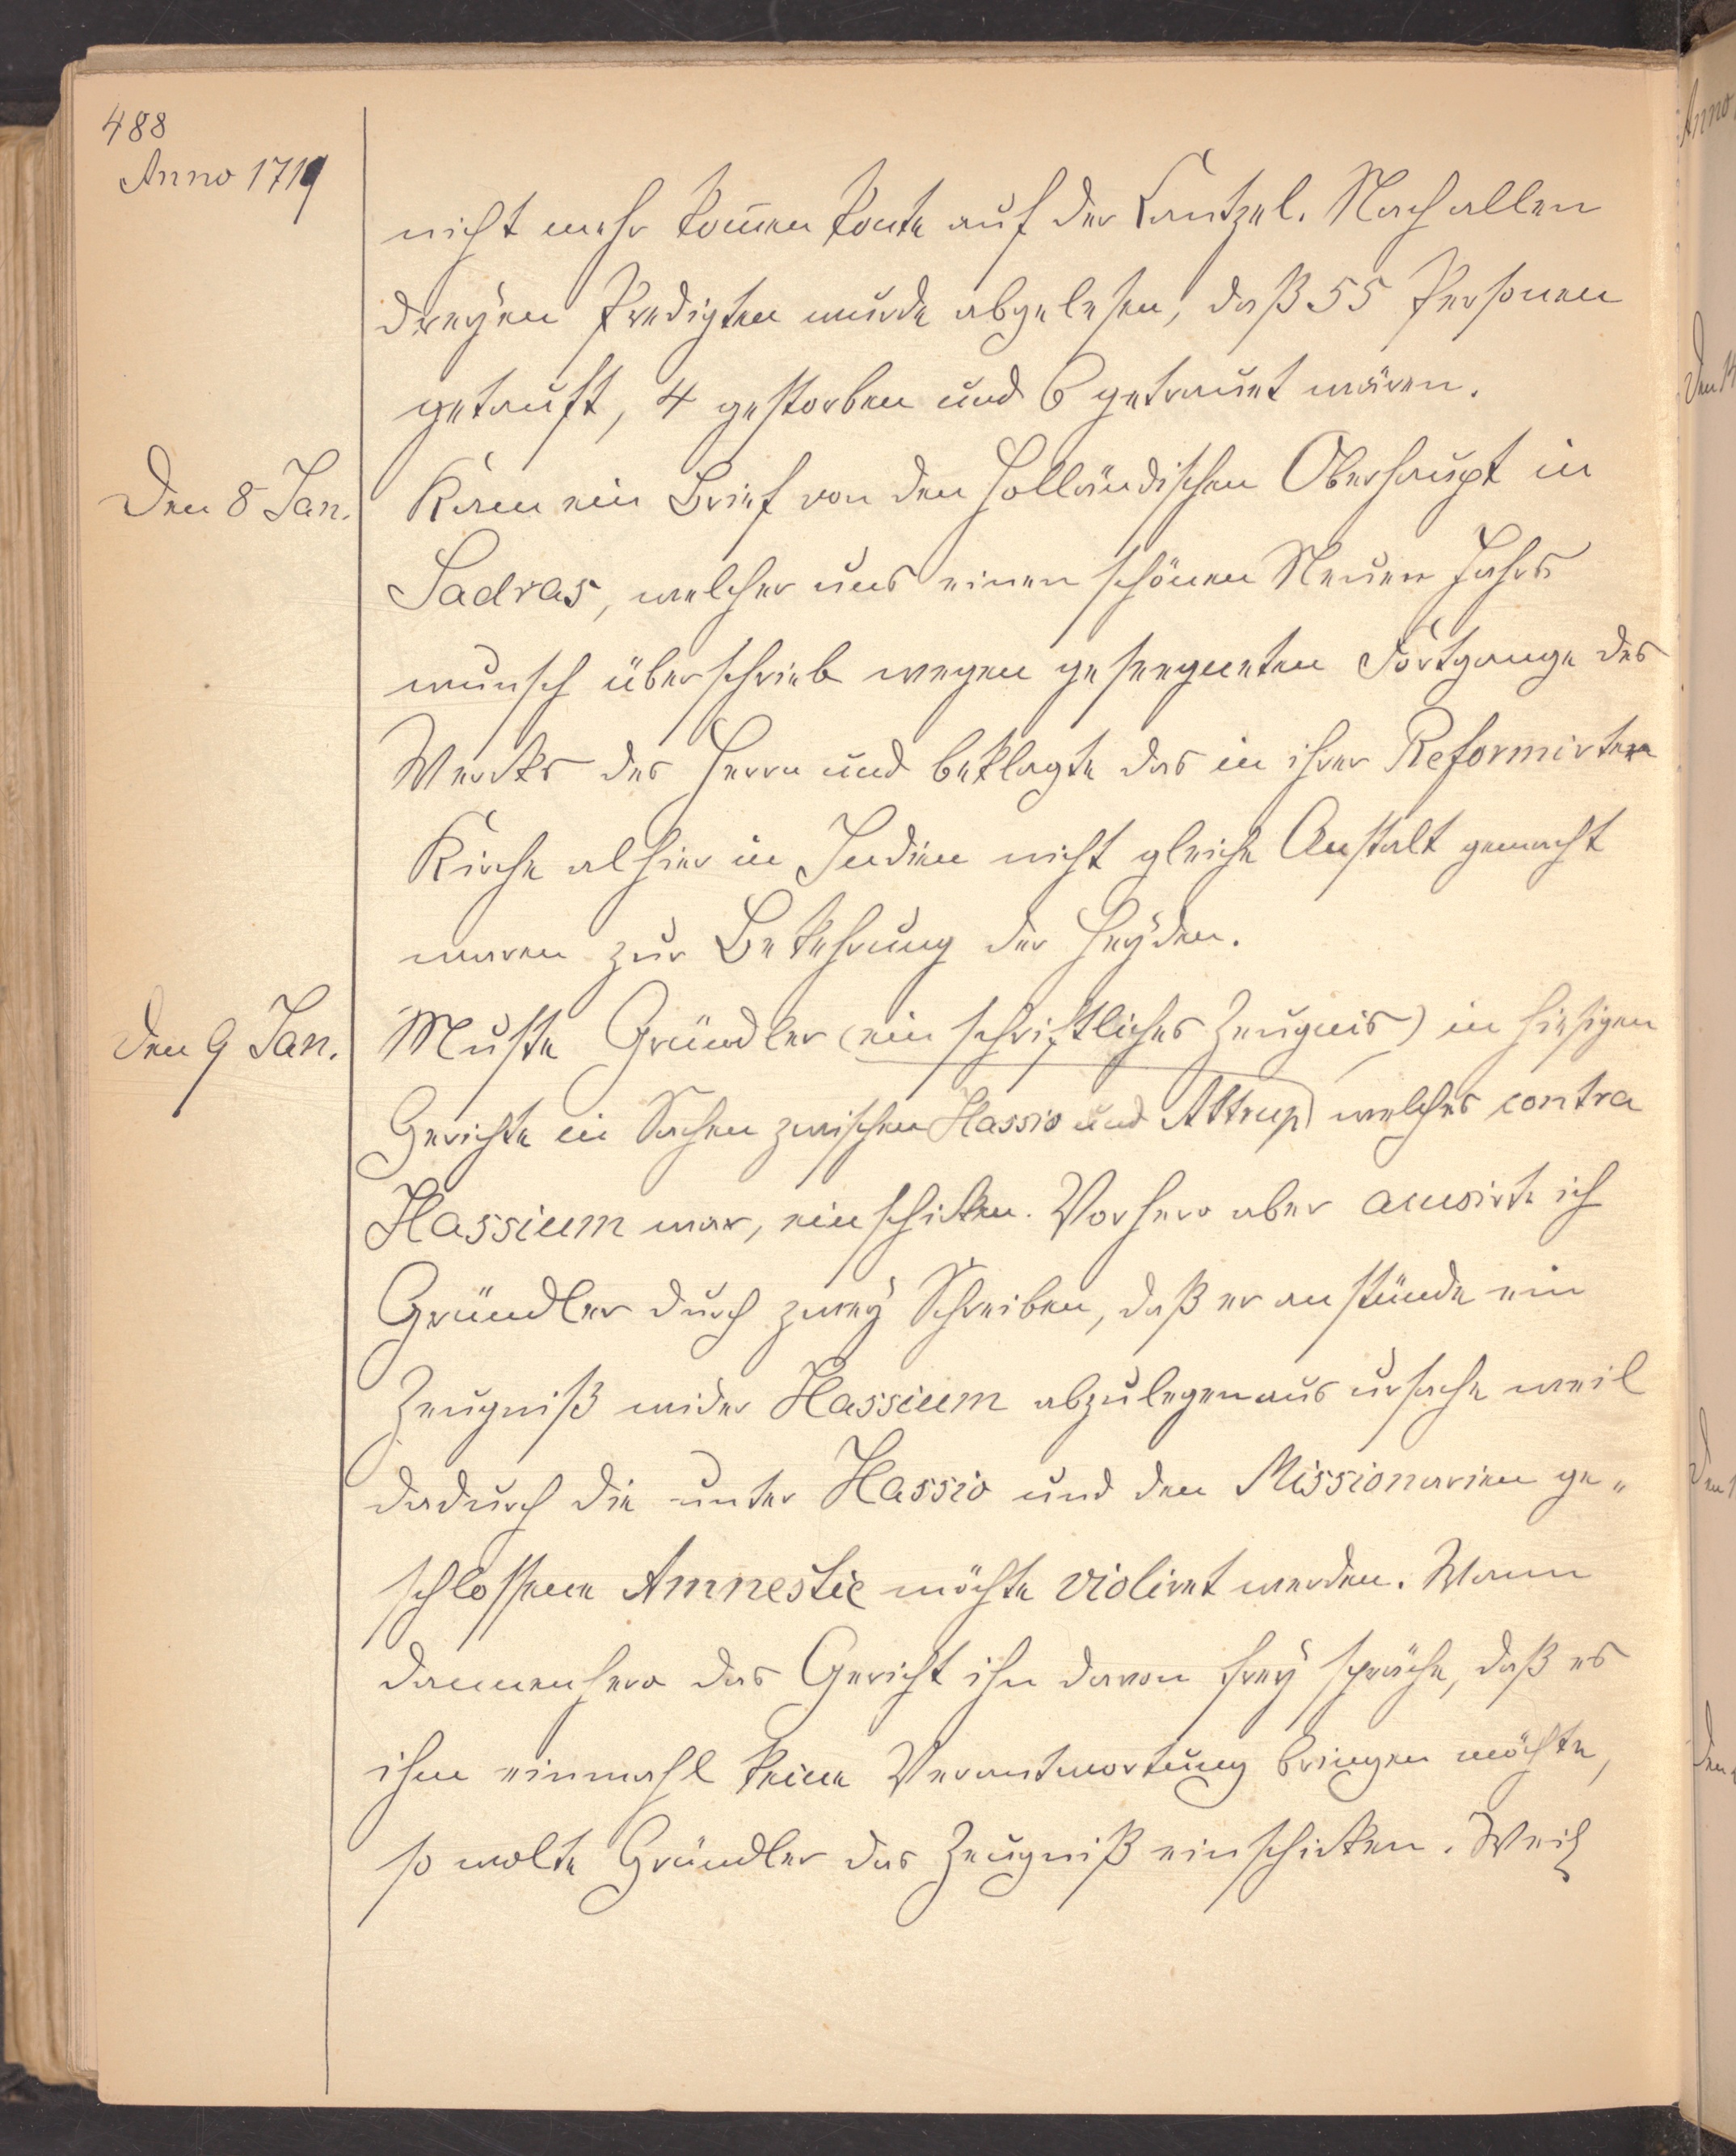 488
Anno 1719
nicht mehr kom̅en konte auf der Cantzel. Nach allen
dreyen Predigten wurde abgelesen, daß 55 Personen
getauft, 4 gestorben und 6 getrauet wären.
Den 8 Jan.
Kam ein Brief von den Holländischen Oberhaupt in
Sadras, welcher uns einen schönen Neuen Jahrs
wunsch überschrieb wegen geseegneten Fortgange des
Wercks des Herrn und beklagte das in ihrer Reformirten
Kirche alhier in Indien nicht gleiche Anstalt gemacht
waren zur Bekehrung der Heyden.
Den 9 Jan.
Muste Gründler (ein schriftliches Zeugnis) in hiesigen
Gerichte in Sachen zwischen Hassio und Attrup) welches contra
Hassium war, einschicken. Vorhero aber
Gründler durch zwey Schreiben, daß er anstünde ein
Zeugniß wider Hassium abzulegen aus ursache weil
dadurch die unter Hassio und den Missionarien ge„
schlossene Amnestie möchte violiret werden. Wann
dannenhero das Gericht ihn davon frey spräche, daß es
ihm einmahl keine Verantwortung bringen möchte,
so wolte Gründler das Zeugniß einschicken. Weil
Anno
Den